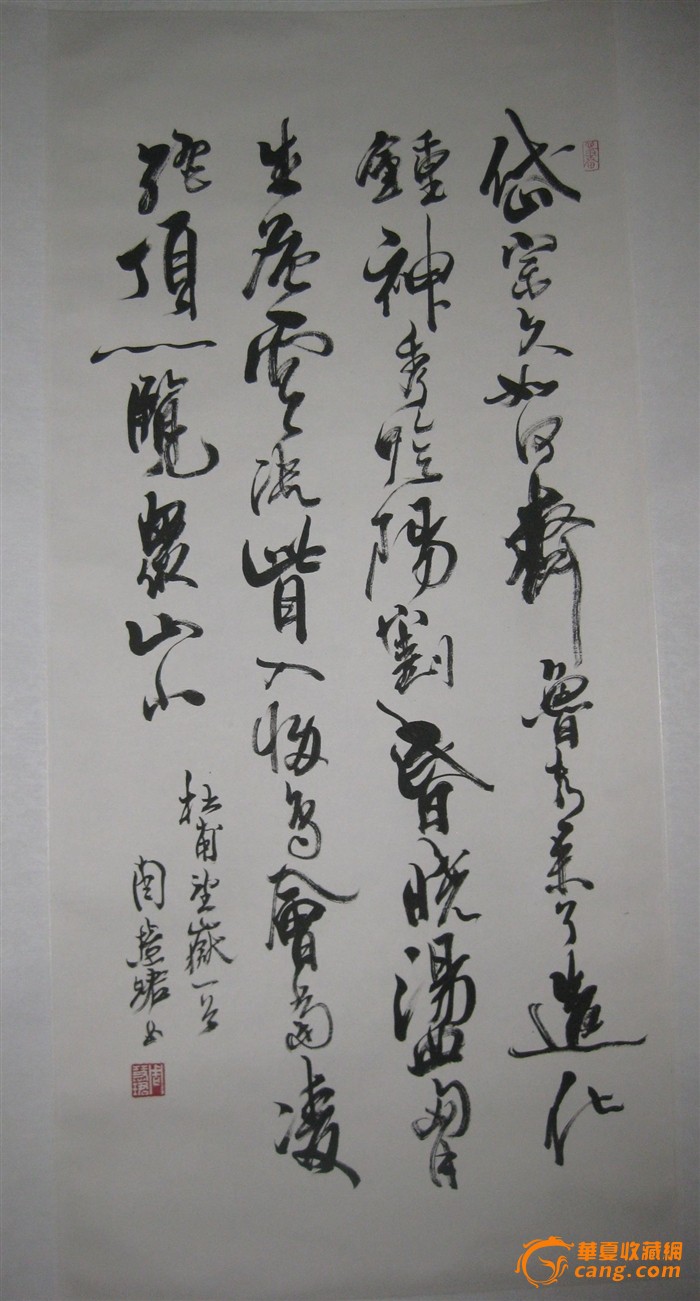 岱宗夫如何齊魯青未了造化
鍾神秀陰陽割昏曉盪胷
生層雲決眥入歸鳥會當凌
絕頂一覽眾山小
杜甫望嶽一首
周慧珺書
周慧珺
華夏收藏網
cang.com